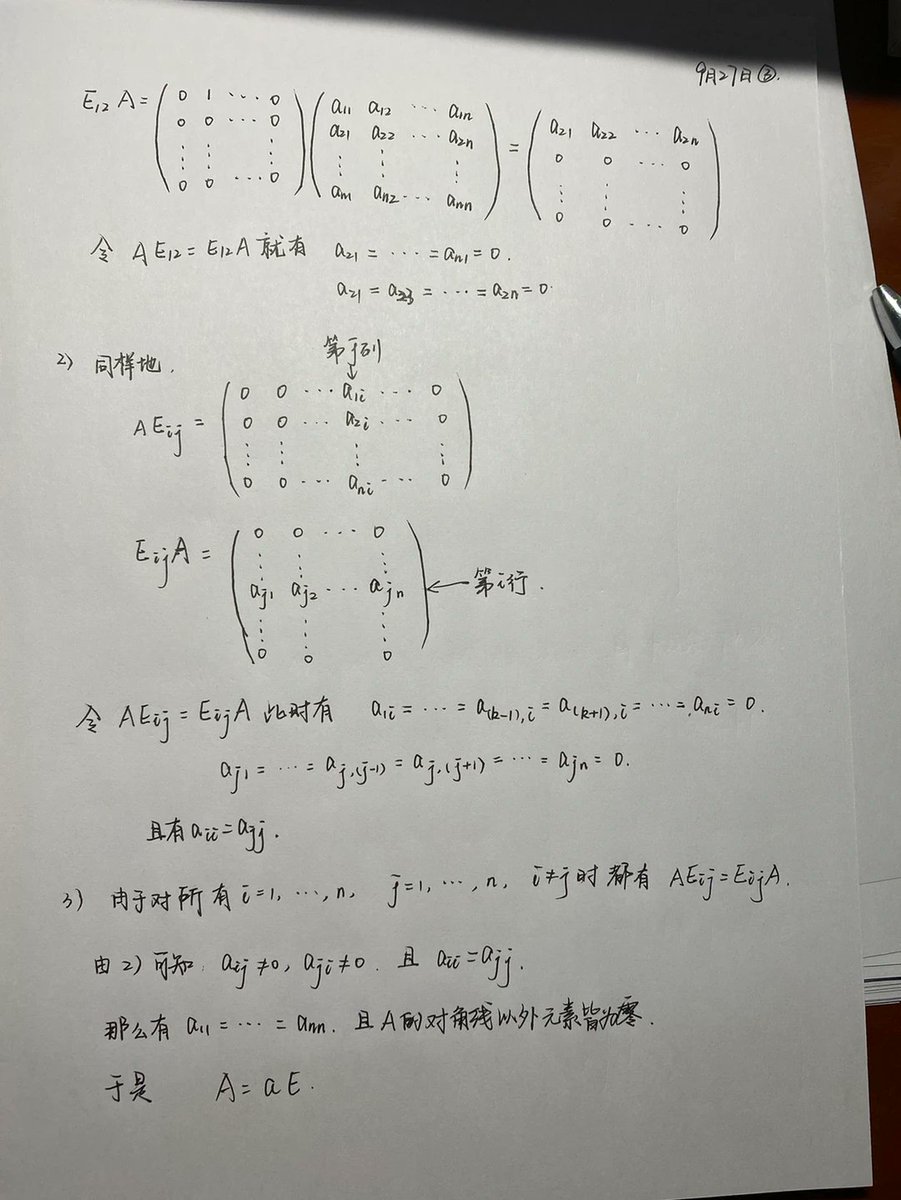 9月27日③.
E₁₂ A = ( 0 1 ⋯ 0 ) ( a₁₁ a₁₂ ⋯ a₁ₙ ) = ( a₂₁ a₂₂ ⋯ a₂ₙ )
( 0 0 ⋯ 0 ) ( a₂₁ a₂₂ ⋯ a₂ₙ ) ( 0 0 ⋯ 0 )
( ⋮ ⋮ ⋮ ) ( ⋮ ⋮ ⋮ ) ( ⋮ ⋮ ⋮ )
( 0 0 ⋯ 0 ) ( aₙ₁ aₙ₂ ⋯ aₙₙ ) ( 0 0 ⋯ 0 )
令 AE₁₂ = E₁₂A 就有 a₂₁ = ⋯ = aₙ₁ = 0.
a₂₁ = a₂₃ = ⋯ = a₂ₙ = 0.
2) 同样地,
第j列
↓
AE_{ij} = ( 0 0 ⋯ a_{1i} ⋯ 0 )
( 0 0 ⋯ a_{2i} ⋯ 0 )
( ⋮ ⋮ ⋮ ⋮ )
( 0 0 ⋯ a_{ni} ⋯ 0 )
E_{ij}A = ( 0 0 ⋯ 0 )
( ⋮ ⋮ ⋮ )
( a_{j1} a_{j2} ⋯ a_{jn} ) ← 第i行.
( ⋮ ⋮ ⋮ )
( 0 0 0 )
令 AE_{ij} = E_{ij}A 此时有 a_{1i} = ⋯ = a_{(k-1),i} = a_{(k+1),i} = ⋯ = a_{ni} = 0.
a_{j1} = ⋯ = a_{j,(j-1)} = a_{j,(j+1)} = ⋯ = a_{jn} = 0.
且有 a_{ii} = a_{jj}.
3) 由于对所有 i=1, ⋯, n, j=1, ⋯, n, i≠j 时都有 AE_{ij} = E_{ij}A.
由 2) 可知: a_{ij} ≠ 0, a_{ji} ≠ 0. 且 a_{ii} = a_{jj}.
那么有 a₁₁ = ⋯ = aₙₙ. 且 A 的对角线以外元素皆为零.
于是 A = aE.